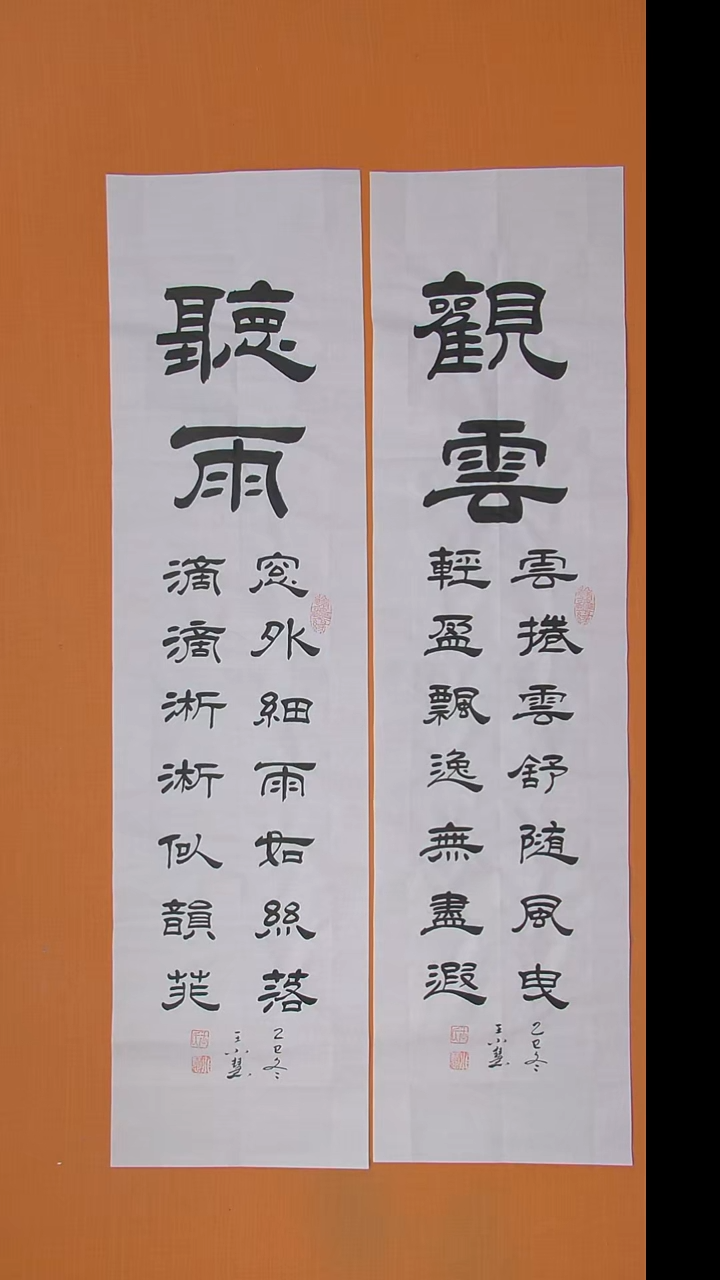 觀雲
雲捲雲舒隨風曳
輕盈飄逸無盡遐
乙巳冬
王小慧
聽雨
窓外細雨如絲落
滴滴淅淅似韻菲
乙巳冬
王小慧